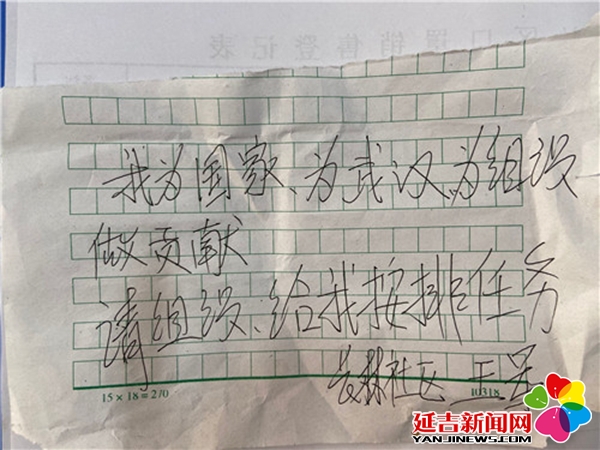 销售登记表
我为国家、为武汉、为组织
做贡献
请组织、给我按排任务
林社区 王
15×18=270 10318
延吉新闻网
YANJINEWS.COM